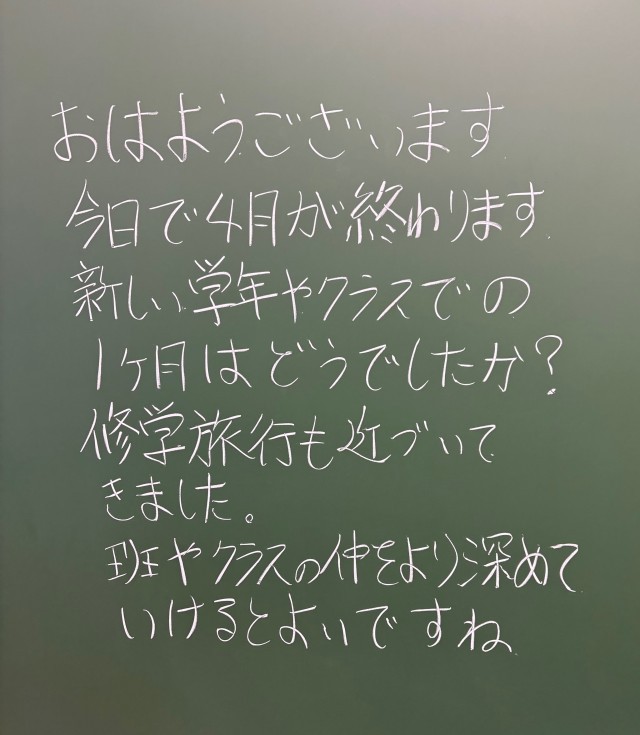 おはようございます
今日で4月が終わります
新しい学年やクラスでの
1ヶ月はどうでしたか?
修学旅行も近づいて
きました。
班やクラスの仲をより深めて
いけるとよいですね